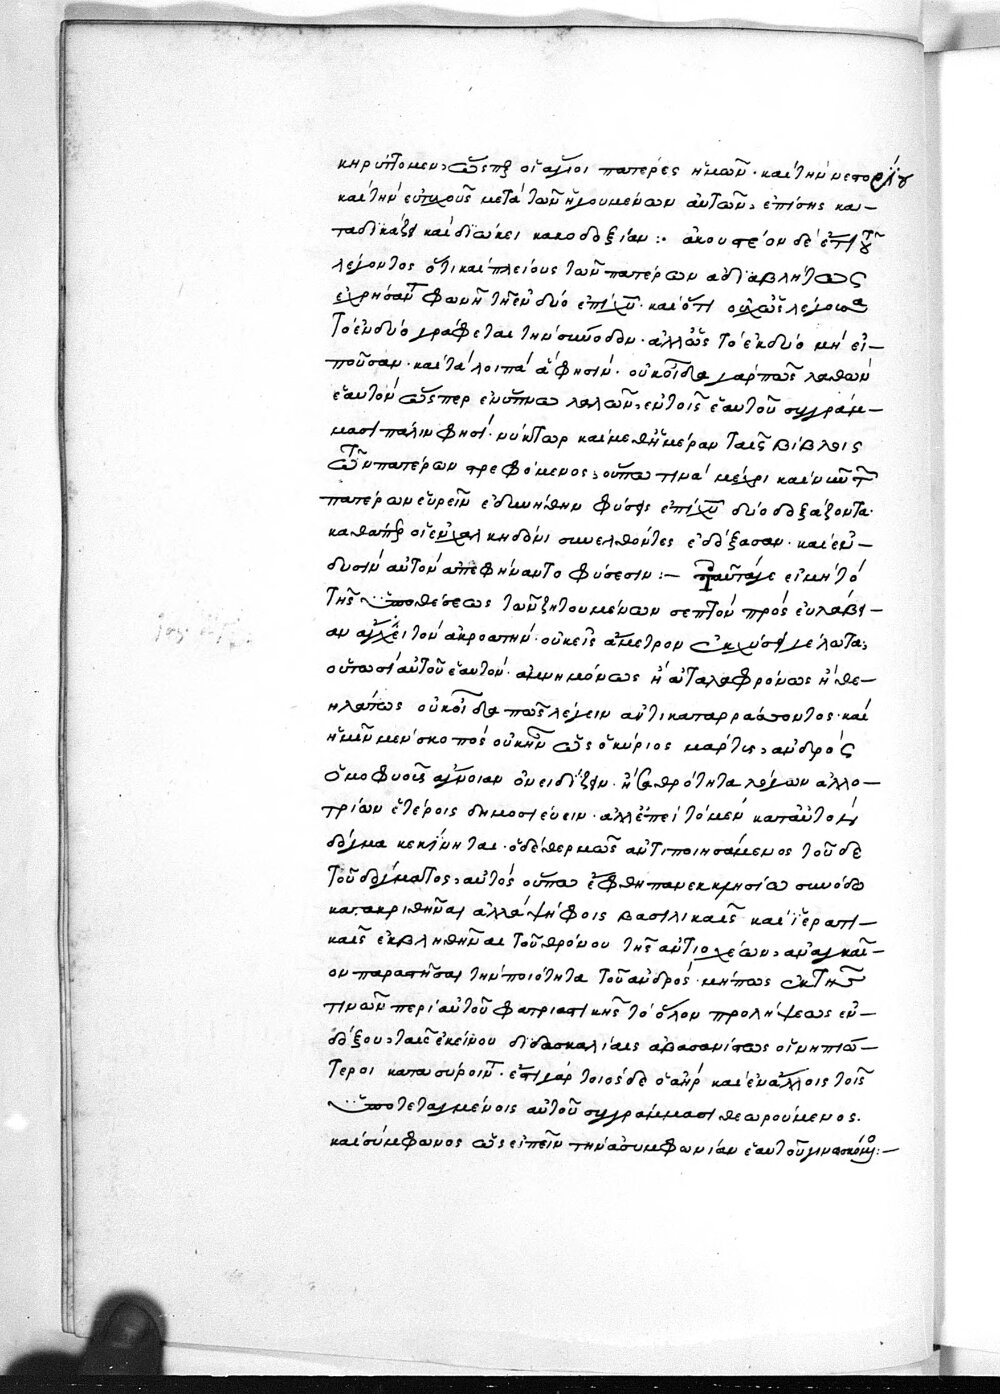 κηρύττομεν, ὥσπερ οἱ ἅγιοι πατέρες ἡμῶν· καὶ τὴν νεστορίου
καὶ τὴν εὐτυχοῦς μετὰ τῶν ἡγουμένων αὐτῶν, ἐπίσης κα-
ταδικάζει καὶ διώκει κακοδοξίαν:· ἀκουστέον δὲ ἐπὶ τούτου
λέγοντος ὅτι καὶ πλείους τῶν πατέρων ἀδιαβλήτως
ἐχρήσαντο φωνῇ τῇ ἐν δύο ἐπὶ χῦ· καὶ ὅτι οὐχ ὡς λέγουσα
τὸ ἐν δύο γράφεται τὴν σύνοδον· ἀλλ' ὡς τὸ ἐκ δύο μὴ εἰ-
ποῦσαν· καὶ τὰ λοιπὰ ἅ φησιν· οὐκ οἶδα γὰρ πῶς λαθὼν
ἑαυτὸν ὥσπερ ἐν ὕπνω λαλῶν, ἐν τοῖς ἑαυτοῦ συγγράμ-
μασι πάλιν φησί· νύκτωρ καὶ μεθ' ἡμέραν ταῖς βίβλοις
τῶν πατέρων τρεφόμενος, οὔπω τινὰ μέχρι καὶ νῦν τῶν
πατέρων εὑρεῖν ἐδυνήθην φύσεις ἐπὶ χῦ δύο δοξάζοντα·
καθάπερ οἱ ἐν χαλκηδόνι συνελθόντες ἐδόξασαν· καὶ ἐν
δυσὶν αὐτὸν ἀπεφήναντο φύσεσιν:— ταῦτά γε εἰ μὴ τὸ
τῆς ὑποθέσεως τῶν ζητουμένων σεπτὸν πρὸς εὐλάβει-
αν ἄγχει τὸν ἀκροατήν· οὐκ εἰς ἄμετρον ἐκχύσει γέλωτα,
οὕτωσὶ αὐτοῦ ἑαυτὸν· ἀμνημόνως ἢ ἀταλαφρόνως ἢ θε-
ηλάτως οὐκ οἶδα πῶς λέγειν ἀντικαταρράσσοντος· καὶ
ἡμῖν μὲν σκοπὸς οὐκ ἦν ὡς ὁ κύριος μάρτυς, ἀνδρὸς
ὁμοφυοῦς ἄγνοιαν ὀνειδίζειν· ἢ σαθρότητα λόγων ἀλλο-
τρίων ἑτέροις δημοσιεύειν· ἀλλ' ἐπεὶ τὸ μὲν κατ' αὐτοῦ
δόγμα κεκίνηται· ὁ δὲ θερμῶς ἀντιποιησάμενος τοῦδε
τοῦ δόγματος, αὐτὸς οὔπω ἔφθη πανεκκλησίω συνόδω
κατακριθῆναι ἀλλὰ ψήφοις βασιλικαῖς καὶ ἱερατι-
καῖς ἐκβληθῆναι τοῦ θρόνου τῆς ἀντιοχέων, ἀναγκαῖ-
ον παραστῆσαι τὴν ποιότητα τοῦ ἀνδρὸς· μήπως ἐκ τῆς
τινῶν περὶ αὐτοῦ φατριαστικῆς τὸ ὅλον προλήψεως ἐν-
δόξου, ταῖς ἐκείνου διδασκαλίαις ἀβασανίστως οἱ νηπιώ-
τεροι κατασυροῖντο· ἔστι γὰρ τοιόσδε ὁ ἀνὴρ καὶ ἐν ἄλλοις τοῖς
ὑποτεταγμένοις αὐτοῦ συγγράμμασι θεωρούμενος.
καὶ σύμφωνος ὡς εἰπεῖν τὴν ἀσυμφωνίαν ἑαυτοῦ γινωσκόμενος:—